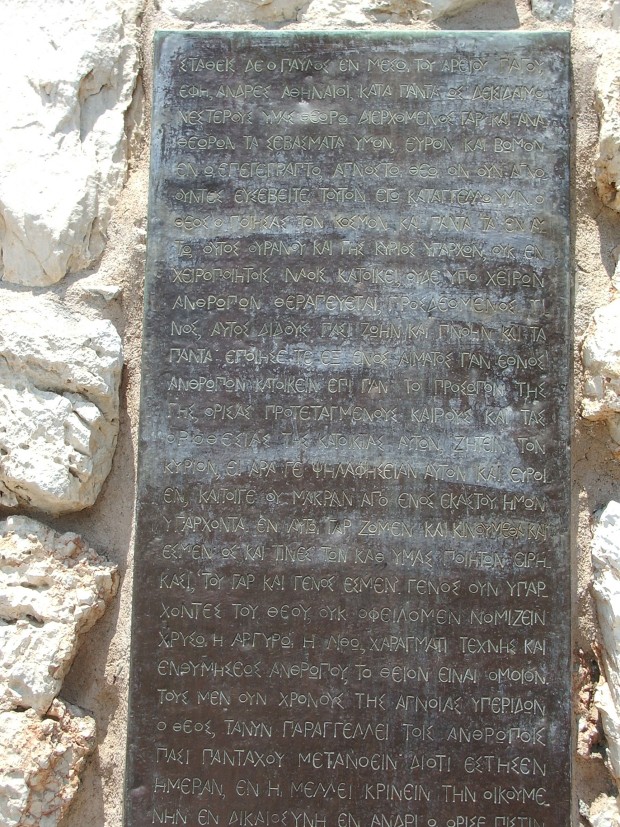 ΣΤΑΘΕΙΣ ΔΕ Ο ΠΑΥΛΟΣ ΕΝ ΜΕΣΩ, ΤΟΥ ΑΡΕΙΟΥ ΠΑΓΟΥ
ΕΦΗ, ΑΝΔΡΕΣ ΑΘΗΝΑΙΟΙ, ΚΑΤΑ ΠΑΝΤΑ ΩΣ ΔΕΙΣΙΔΑΙΜΟ
ΝΕΣΤΕΡΟΥΣ ΥΜΑΣ ΘΕΩΡΩ. ΔΙΕΡΧΟΜΕΝΟΣ ΓΑΡ ΚΑΙ ΑΝΑ
ΘΕΩΡΩΝ ΤΑ ΣΕΒΑΣΜΑΤΑ ΥΜΩΝ, ΕΥΡΟΝ ΚΑΙ ΒΩΜΟΝ
ΕΝ Ω, ΕΠΕΓΕΓΡΑΠΤΟ, ΑΓΝΩΣΤΩ, ΘΕΩ, ΟΝ ΟΥΝ ΑΓΝΟ
ΟΥΝΤΕΣ ΕΥΣΕΒΕΙΤΕ ΤΟΥΤΟΝ ΕΓΩ ΚΑΤΑΓΓΕΛΛΩ ΥΜΙΝ. Ο
ΘΕΟΣ Ο ΠΟΙΗΣΑΣ ΤΟΝ ΚΟΣΜΟΝ ΚΑΙ ΠΑΝΤΑ ΤΑ ΕΝ ΑΥ
ΤΩ, ΟΥΤΟΣ ΟΥΡΑΝΟΥ ΚΑΙ ΓΗΣ ΚΥΡΙΟΣ ΥΠΑΡΧΩΝ, ΟΥΚ ΕΝ
ΧΕΙΡΟΠΟΙΗΤΟΙΣ ΝΑΟΙΣ ΚΑΤΟΙΚΕΙ, ΟΥΔΕ ΥΠΟ ΧΕΙΡΩΝ
ΑΝΘΡΩΠΩΝ ΘΕΡΑΠΕΥΕΤΑΙ, ΠΡΟΣΔΕΟΜΕΝΟΣ ΤΙ
ΝΟΣ, ΑΥΤΟΣ ΔΙΔΟΥΣ ΠΑΣΙ ΖΩΗΝ ΚΑΙ ΠΝΟΗΝ ΚΑΙ ΤΑ
ΠΑΝΤΑ. ΕΠΟΙΗΣΕ ΤΕ ΕΞ ΕΝΟΣ ΑΙΜΑΤΟΣ ΠΑΝ ΕΘΝΟΣ
ΑΝΘΡΩΠΩΝ ΚΑΤΟΙΚΕΙΝ ΕΠΙ ΠΑΝ ΤΟ ΠΡΟΣΩΠΟΝ ΤΗΣ
ΓΗΣ, ΟΡΙΣΑΣ ΠΡΟΤΕΤΑΓΜΕΝΟΥΣ ΚΑΙΡΟΥΣ ΚΑΙ ΤΑΣ
ΟΡΟΘΕΣΙΑΣ ΤΗΣ ΚΑΤΟΙΚΙΑΣ ΑΥΤΩΝ. ΖΗΤΕΙΝ ΤΟΝ
ΚΥΡΙΟΝ, ΕΙ ΑΡΑ ΓΕ ΨΗΛΑΦΗΣΕΙΑΝ ΑΥΤΟΝ ΚΑΙ ΕΥΡΟΙ
ΕΝ, ΚΑΙΤΟΙΓΕ ΟΥ ΜΑΚΡΑΝ ΑΠΟ ΕΝΟΣ ΕΚΑΣΤΟΥ ΗΜΩΝ
ΥΠΑΡΧΟΝΤΑ. ΕΝ ΑΥΤΩ, ΓΑΡ ΖΩΜΕΝ ΚΑΙ ΚΙΝΟΥΜΕΘΑ ΚΑΙ
ΕΣΜΕΝ, ΩΣ ΚΑΙ ΤΙΝΕΣ ΤΩΝ ΚΑΘ ΥΜΑΣ ΠΟΙΗΤΩΝ ΕΙΡΗ
ΚΑΣΙ, ΤΟΥ ΓΑΡ ΚΑΙ ΓΕΝΟΣ ΕΣΜΕΝ. ΓΕΝΟΣ ΟΥΝ ΥΠΑΡ
ΧΟΝΤΕΣ ΤΟΥ ΘΕΟΥ ΟΥΚ ΟΦΕΙΛΟΜΕΝ ΝΟΜΙΖΕΙΝ
ΧΡΥΣΩ, Η ΑΡΓΥΡΩ, Η ΛΙΘΩ, ΧΑΡΑΓΜΑΤΙ ΤΕΧΝΗΣ ΚΑΙ
ΕΝΘΥΜΗΣΕΩΣ ΑΝΘΡΩΠΟΥ, ΤΟ ΘΕΙΟΝ ΕΙΝΑΙ ΟΜΟΙΟΝ.
ΤΟΥΣ ΜΕΝ ΟΥΝ ΧΡΟΝΟΥΣ ΤΗΣ ΑΓΝΟΙΑΣ ΥΠΕΡΙΔΩΝ
Ο ΘΕΟΣ, ΤΑΝΥΝ ΠΑΡΑΓΓΕΛΛΕΙ ΤΟΙΣ ΑΝΘΡΩΠΟΙΣ
ΠΑΣΙ ΠΑΝΤΑΧΟΥ ΜΕΤΑΝΟΕΙΝ ΔΙΟΤΙ ΕΣΤΗΣΕΝ
ΗΜΕΡΑΝ, ΕΝ Η, ΜΕΛΛΕΙ ΚΡΙΝΕΙΝ ΤΗΝ ΟΙΚΟΥΜΕ
ΝΗΝ ΕΝ ΔΙΚΑΙΟΣΥΝΗ ΕΝ ΑΝΔΡΙ Ω ΩΡΙΣΕ ΠΙΣΤΙΝ